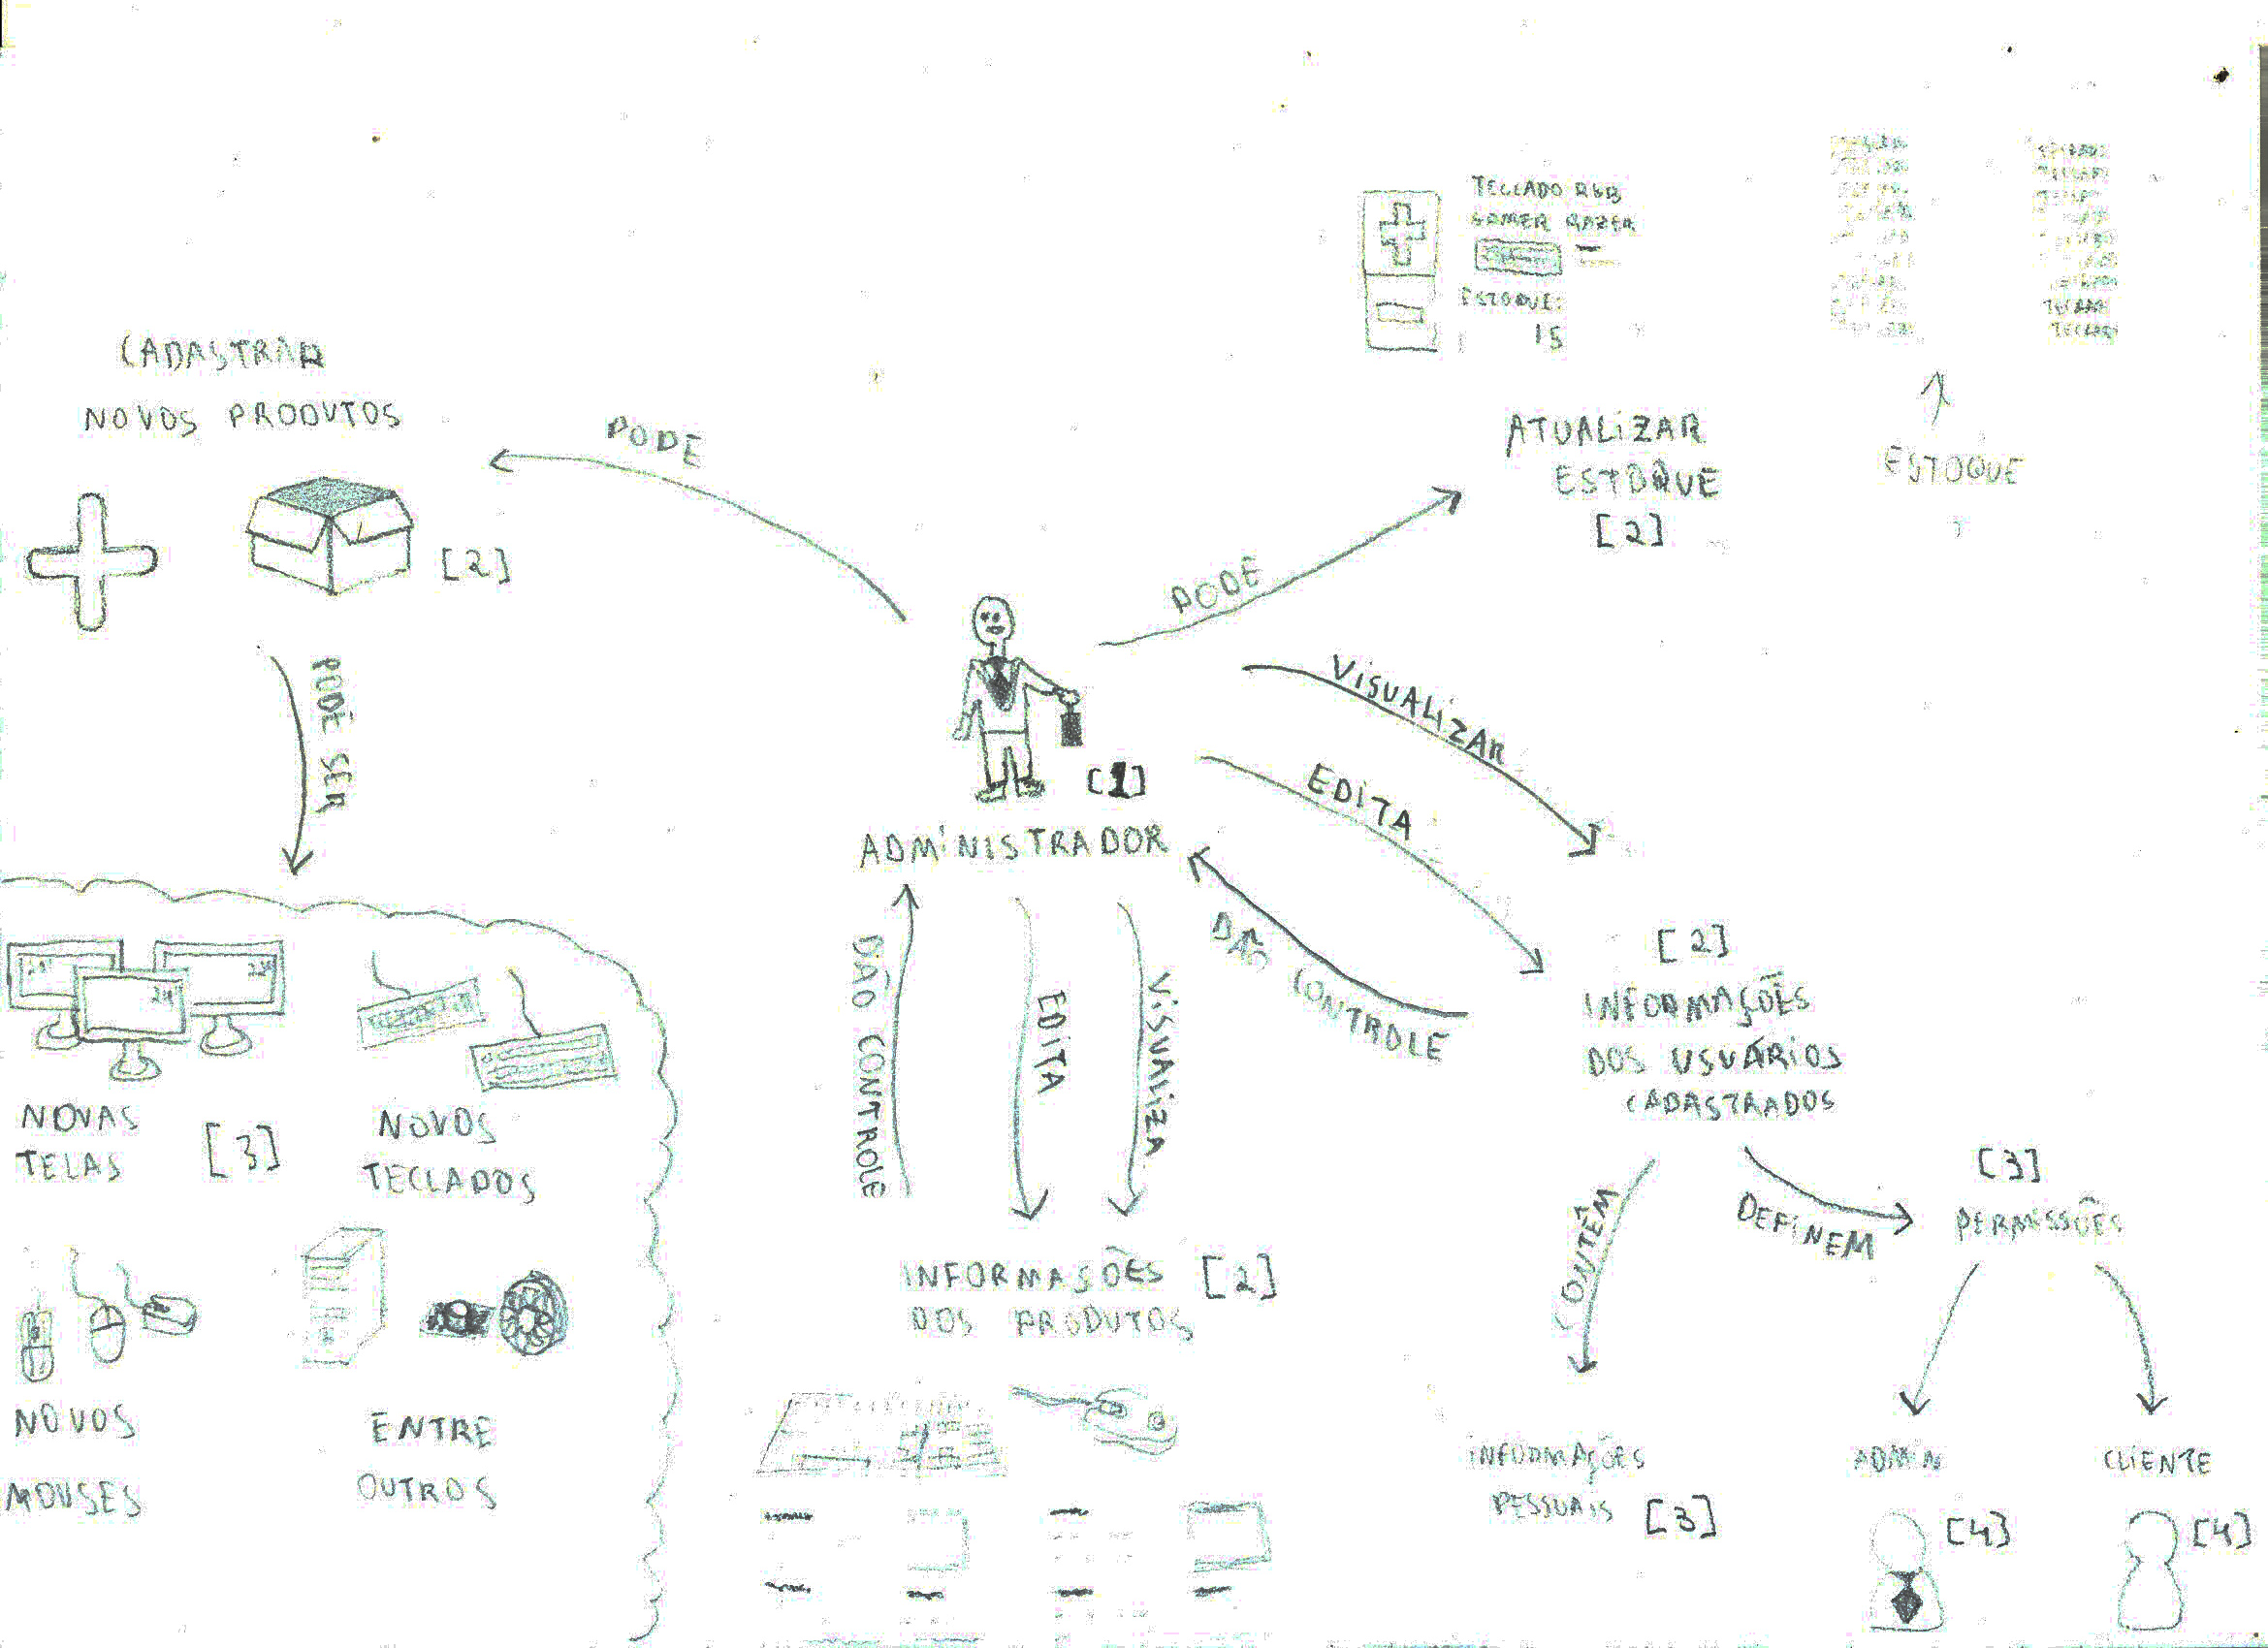 TECLADO RGB
GAMER RAZER
ESTOQUE:
15
CADASTRAR
NOVOS PRODUTOS
[2]
PODE
ATUALIZAR
ESTOQUE
[2]
ESTOQUE
PODE
PODE SER
[1]
ADMINISTRADOR
VISUALIZAR
EDITA
DÃO CONTROLE
[2]
INFORMAÇÕES
DOS USUÁRIOS
CADASTRADOS
DÃO CONTROLE
EDITA
VISUALIZA
24"
NOVAS
TELAS
[3]
NOVOS
TECLADOS
NOVOS
MOUSES
ENTRE
OUTROS
INFORMAÇÕES
DOS PRODUTOS
[2]
CONTÉM
DEFINEM
[3]
PERMISSÕES
INFORMAÇÕES
PESSUAIS
[3]
ADMIN
[4]
CLIENTE
[4]